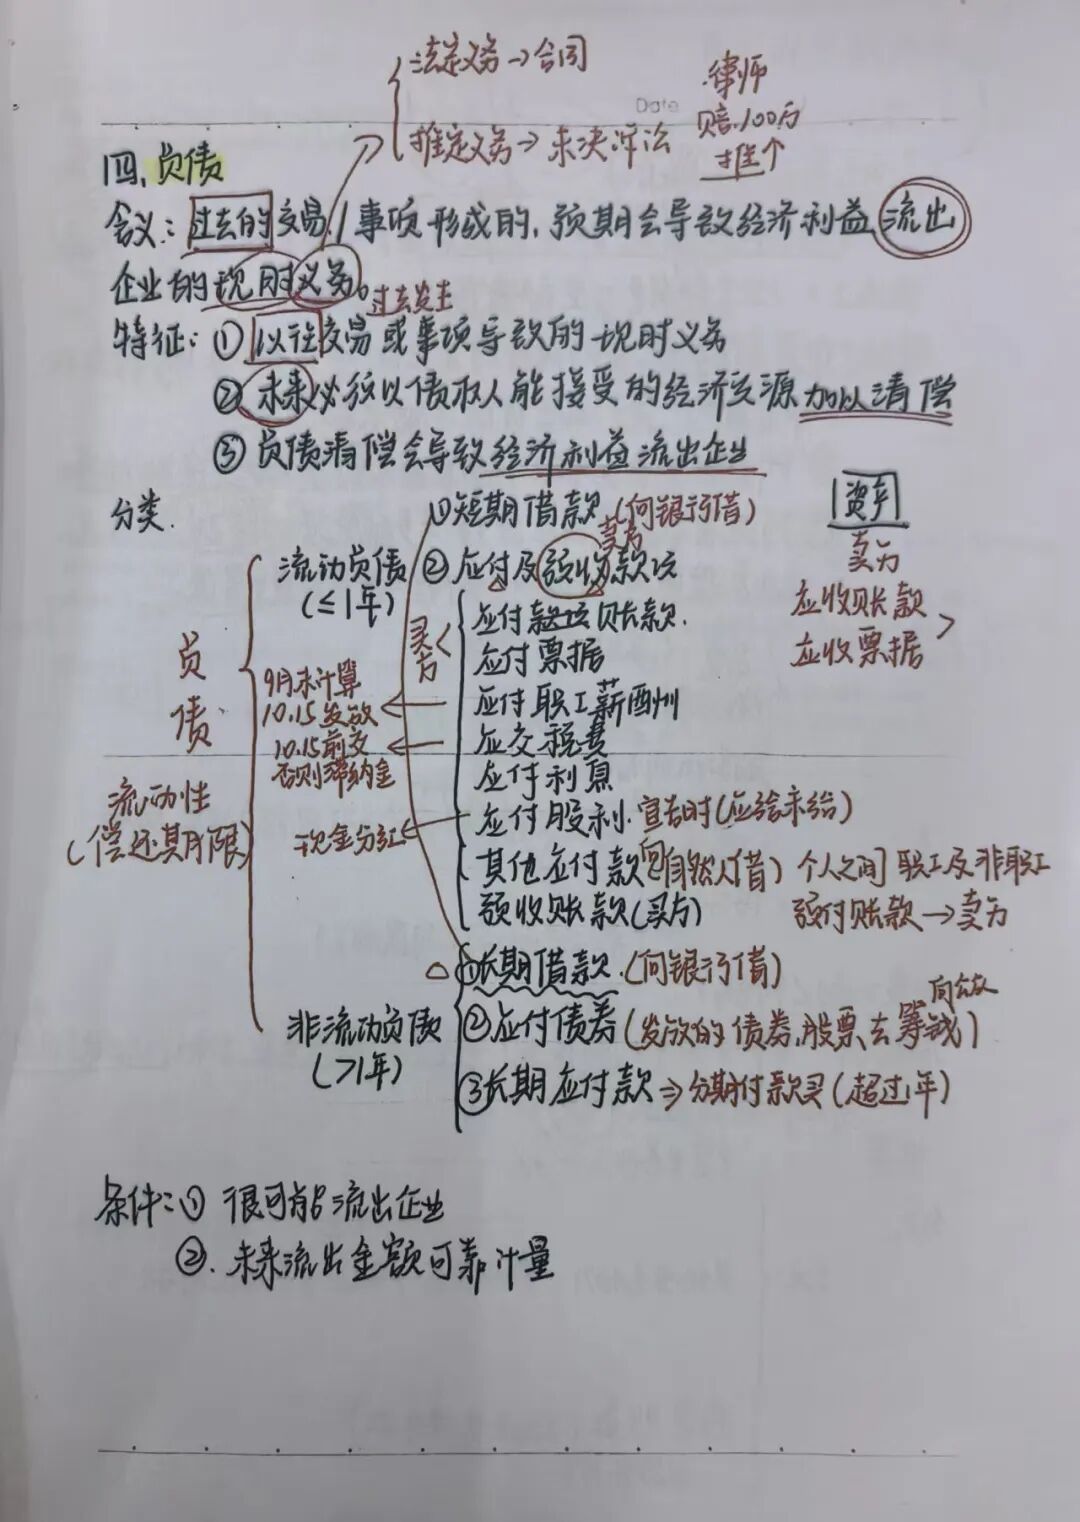 法定义务→合同
律师
Date
赔100万
推定义务→未决诉讼
推个
四、负债
含义：过去的交易/事项形成的，预期会导致经济利益流出
企业的现时义务。
过去发生
特征：①以往交易或事项导致的现时义务
②未来必须以债权人能接受的经济资源加以清偿
③负债清偿会导致经济利益流出企业
分类.
①短期借款(向银行借)
资产
卖方
卖方
流动负债
(≤1年)
②应付及预收款项
应收账款
买方
应付账款.
应收票据
应付票据
负债
9月末计算
10.15发放
应付职工薪酬
10.15前交
应交税费
否则滞纳金
应付利息
流动性
(偿还期限)
现金分红
应付股利.宣告时(应给未给)
其他应付款(向自然人借) 个人之间 职工及非职工
预收账款(买方) 预付账款→卖方
①长期借款.(向银行借)
非流动负债
(>1年)
②应付债券(发放的债券,股票,去筹钱)
③长期应付款⇒分期付款买(超过1年)
条件：①很可能流出企业
②.未来流出金额可靠计量